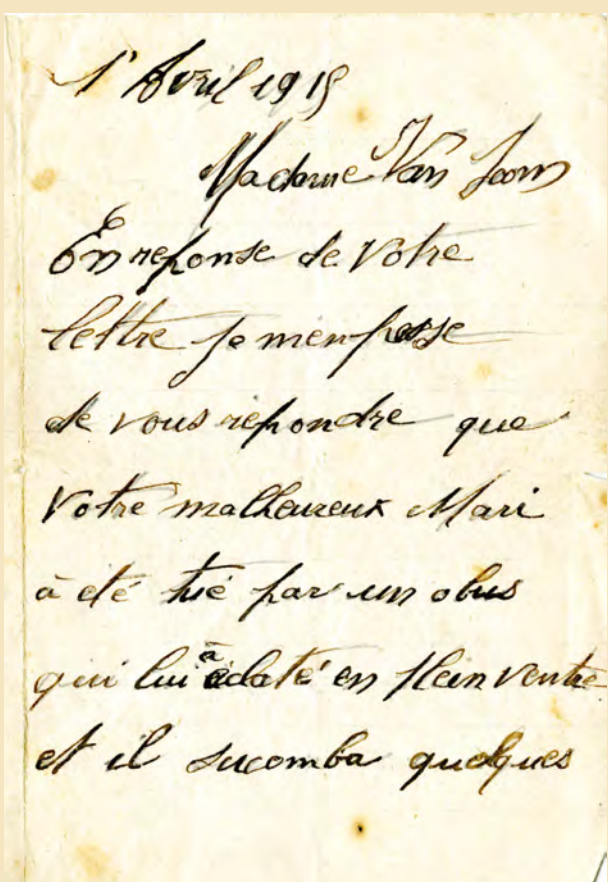 1' Avril 1915
Madame Van
En reponse de Votre
lettre je menpresse
de vous repondre que
Votre malheureux Mari
à été tué par un obus
qui lui à éclaté en plein ventre
et il sucomba quelques